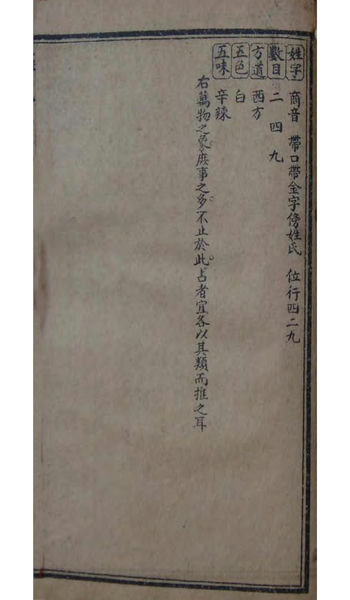 姓字 商音 帶口帶金字傍姓氏 位行四二九
數目 二 四 九
方道 西方
五色 白
五味 辛辣
右萬物之象庶事之多。不止於此。占者宜各以其類而推之耳